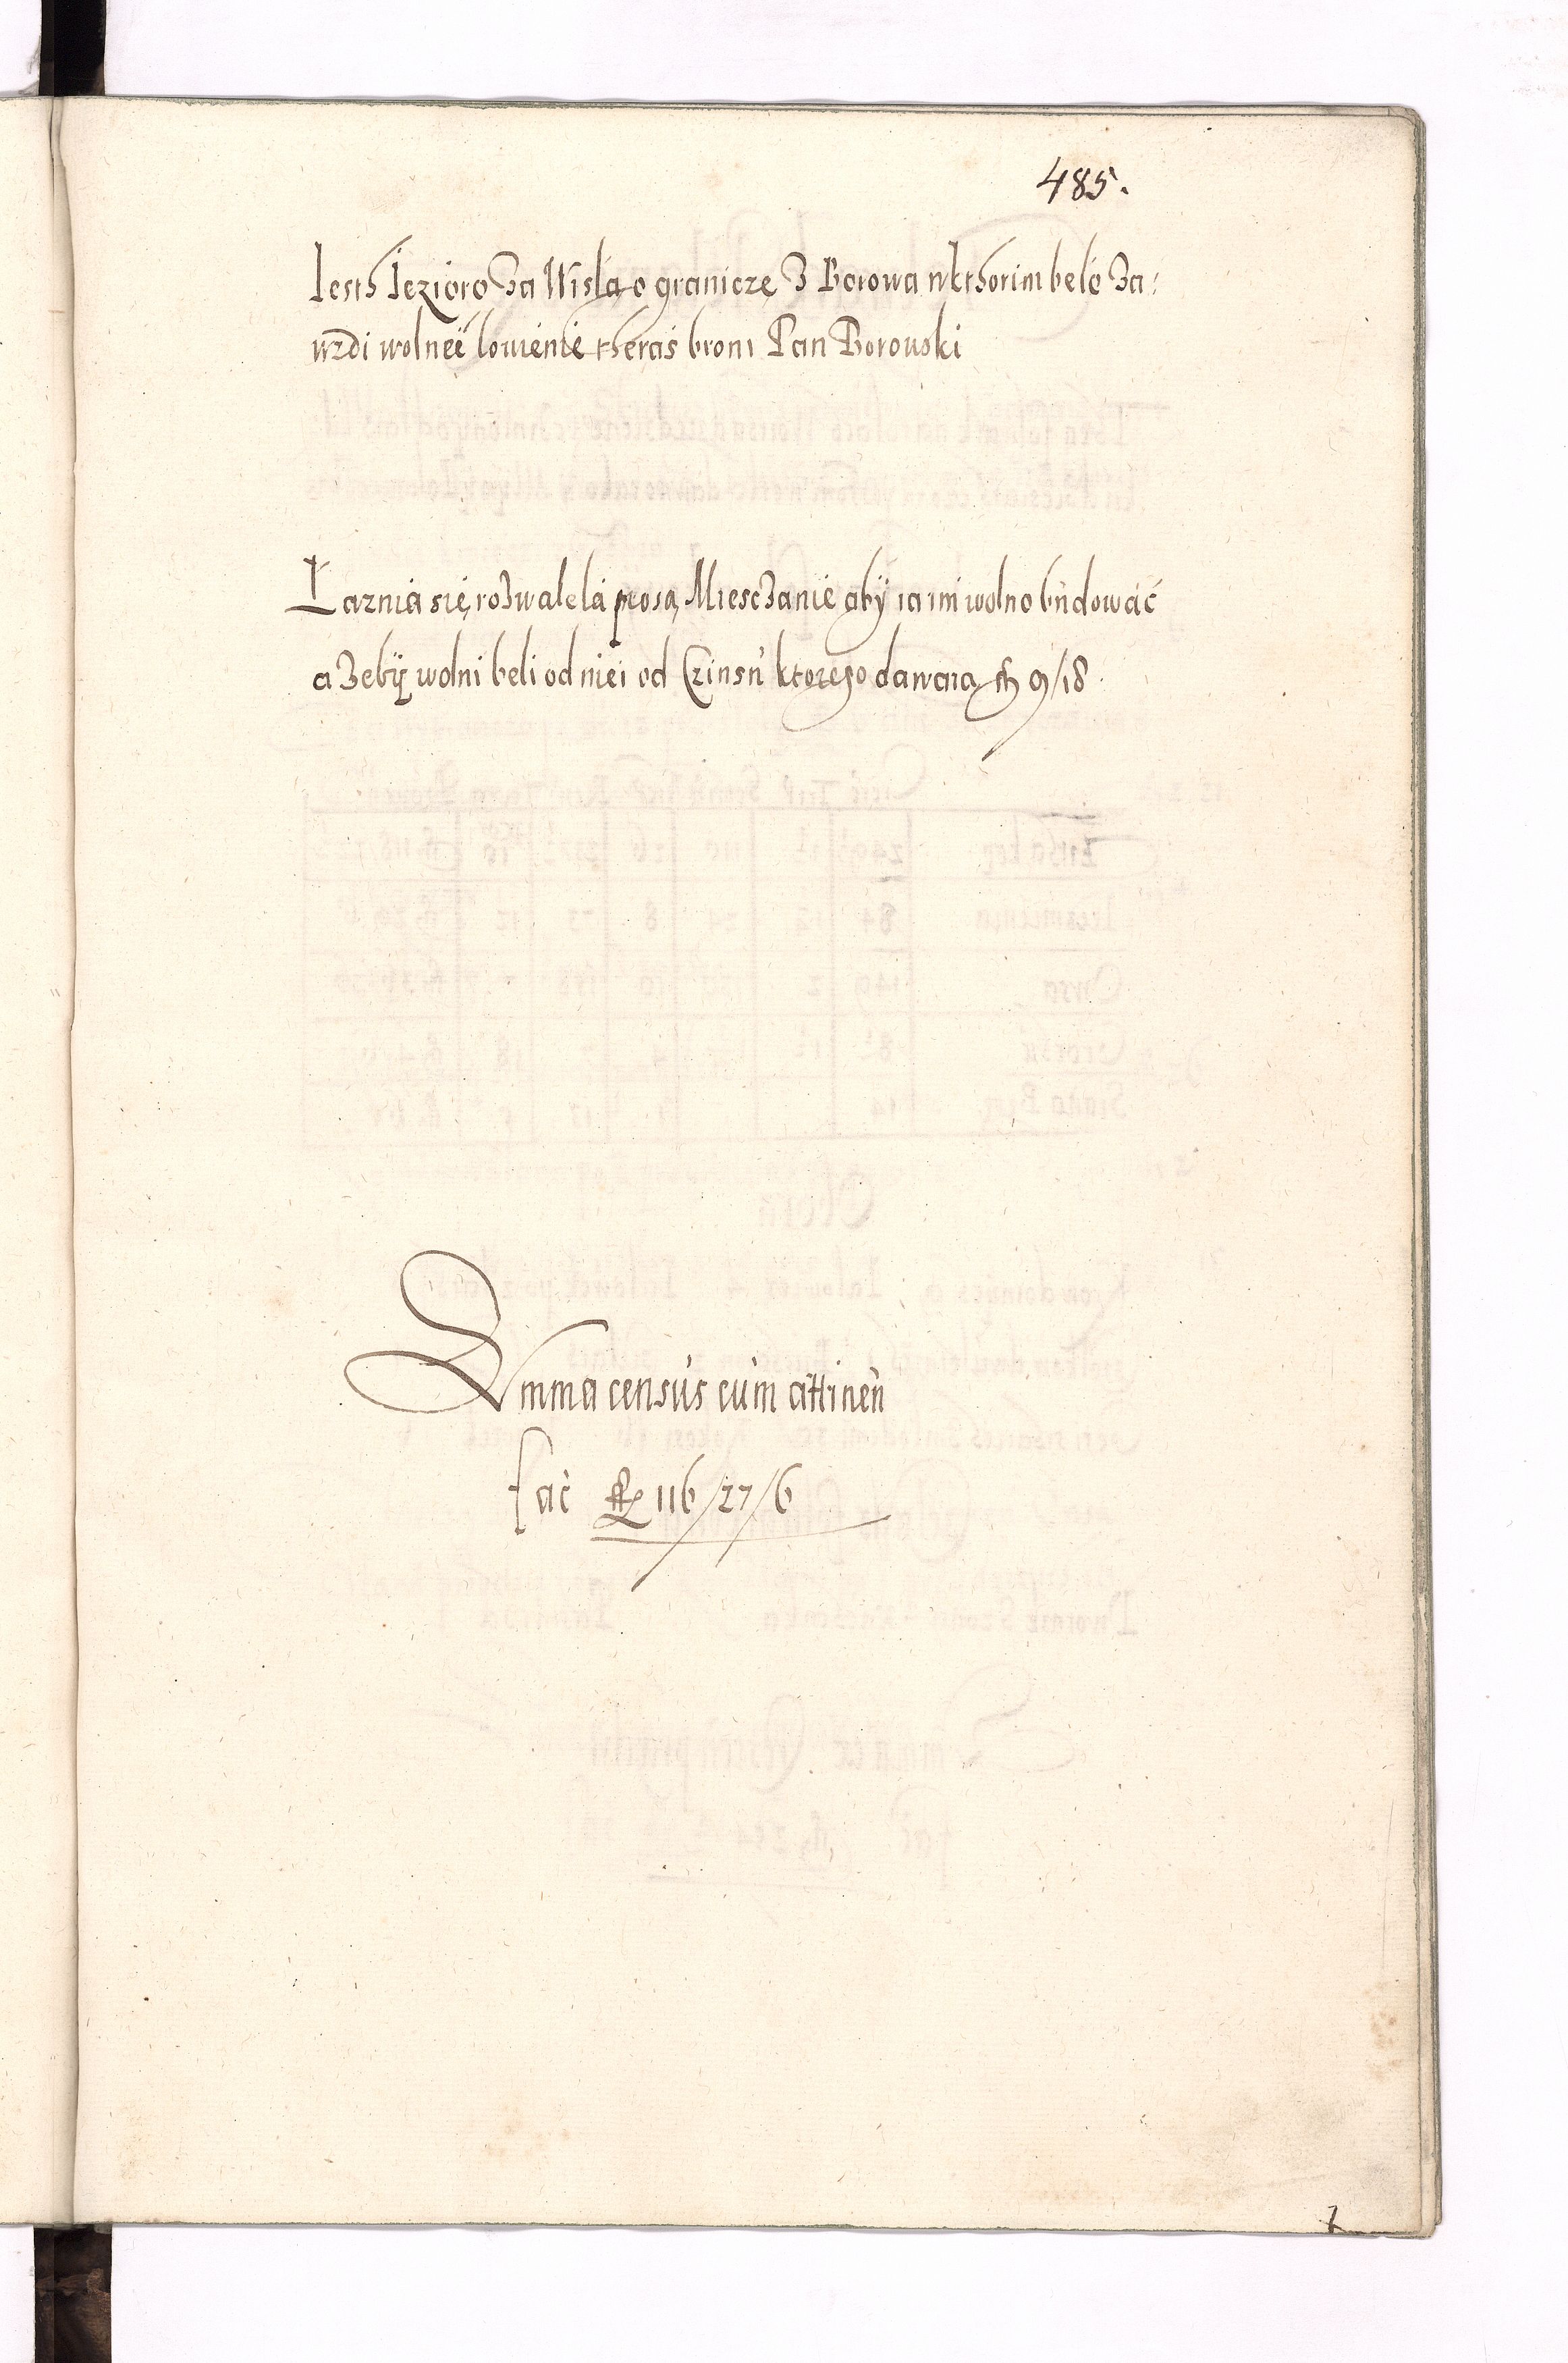 485.
Iesth Iezioro za Wisłą o granicze z Borowa wkthorim beło za:
wżdi wolneë łowienié theras broni Pan Borowski
Łaznia się rozwaleła proszą Miesczanie aby ią im wolno budowáć
a zebÿ wolni beli od niei od Czinsu ktorego dawaią fl 9/18
Summa census cum attinen
fac fl 116/27/6
1